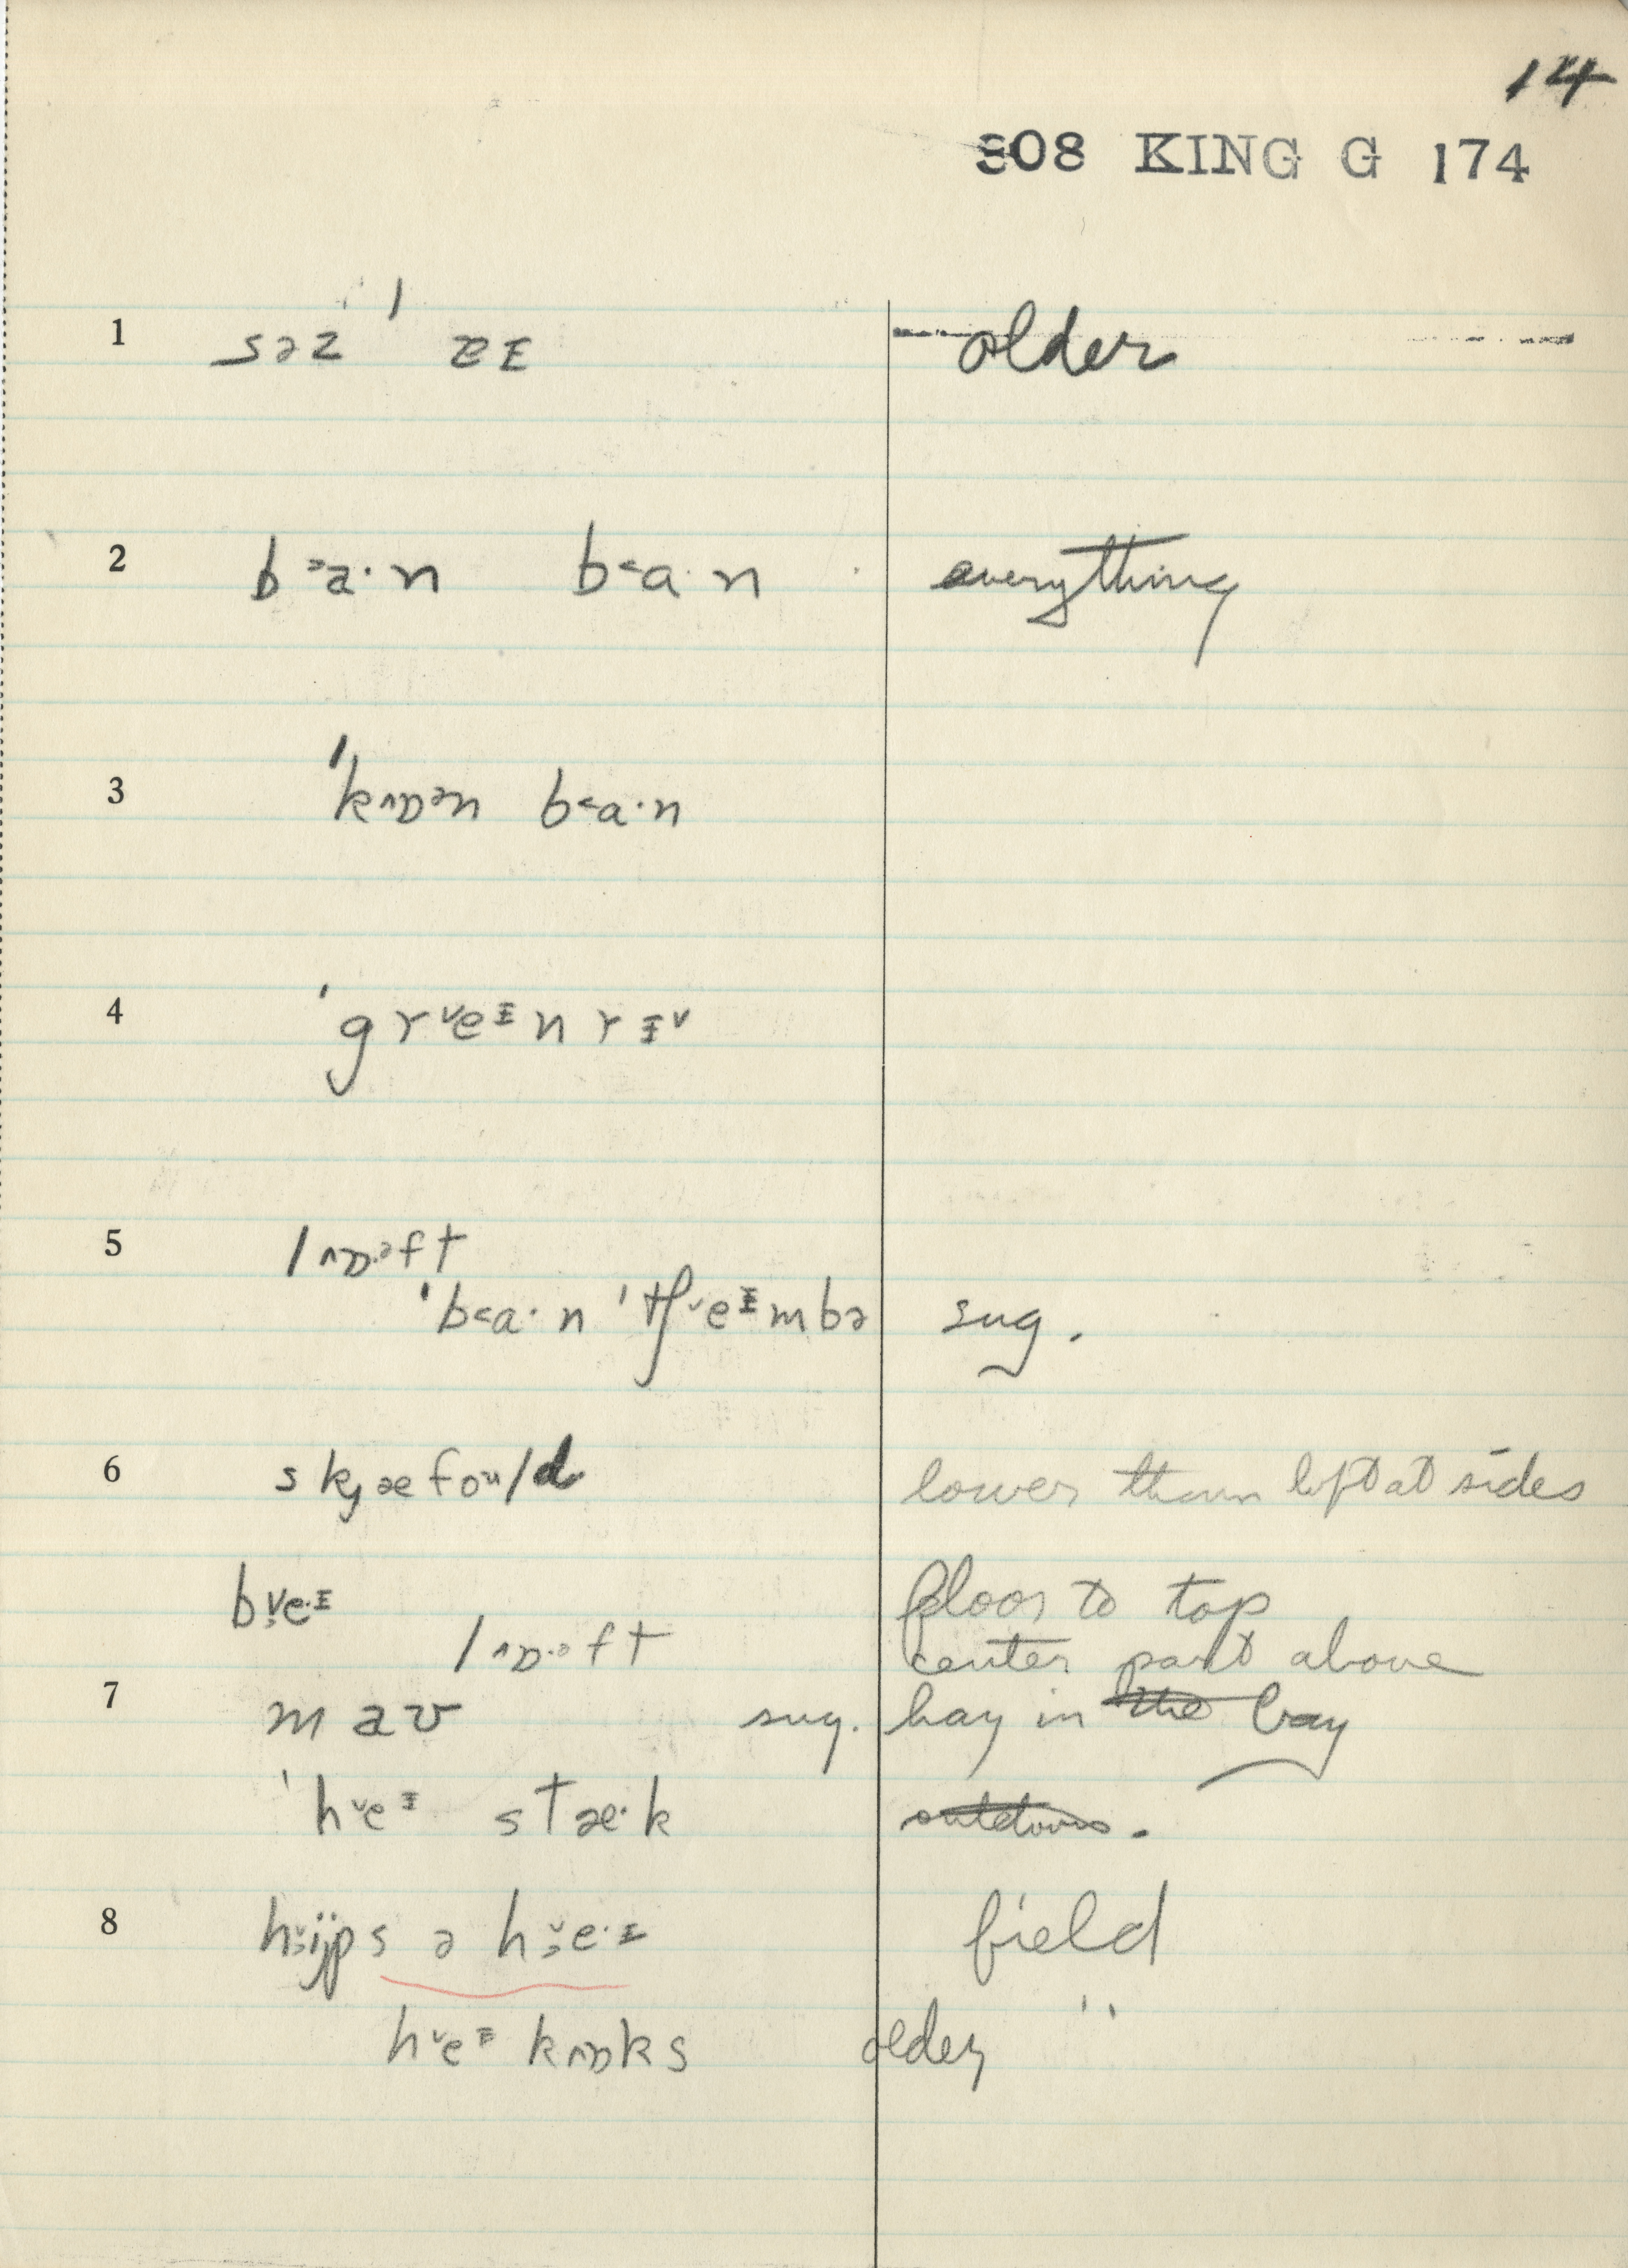 14
808 KING G 174
1 səz ' zɪ older
2 b˃a·n b˂a·n everything
3 'k^ɒən b˂a·n
4 'grˇeᵻnrᵻˇ
5 l^ɒ·əft
'b˂a·n 'tʃˇeᵻmbə sug.
6 skjæfoᵘld lower than loft at sides
bˇe·ɪ floor to top
l^ɒ·əft center part above
7 maʊ sug. hay in the bay
'hˇeᵻ stæ·k outdoors.
8 hijps ə hˇe·ɪ field
hˇeᵻ k^ɒks older "